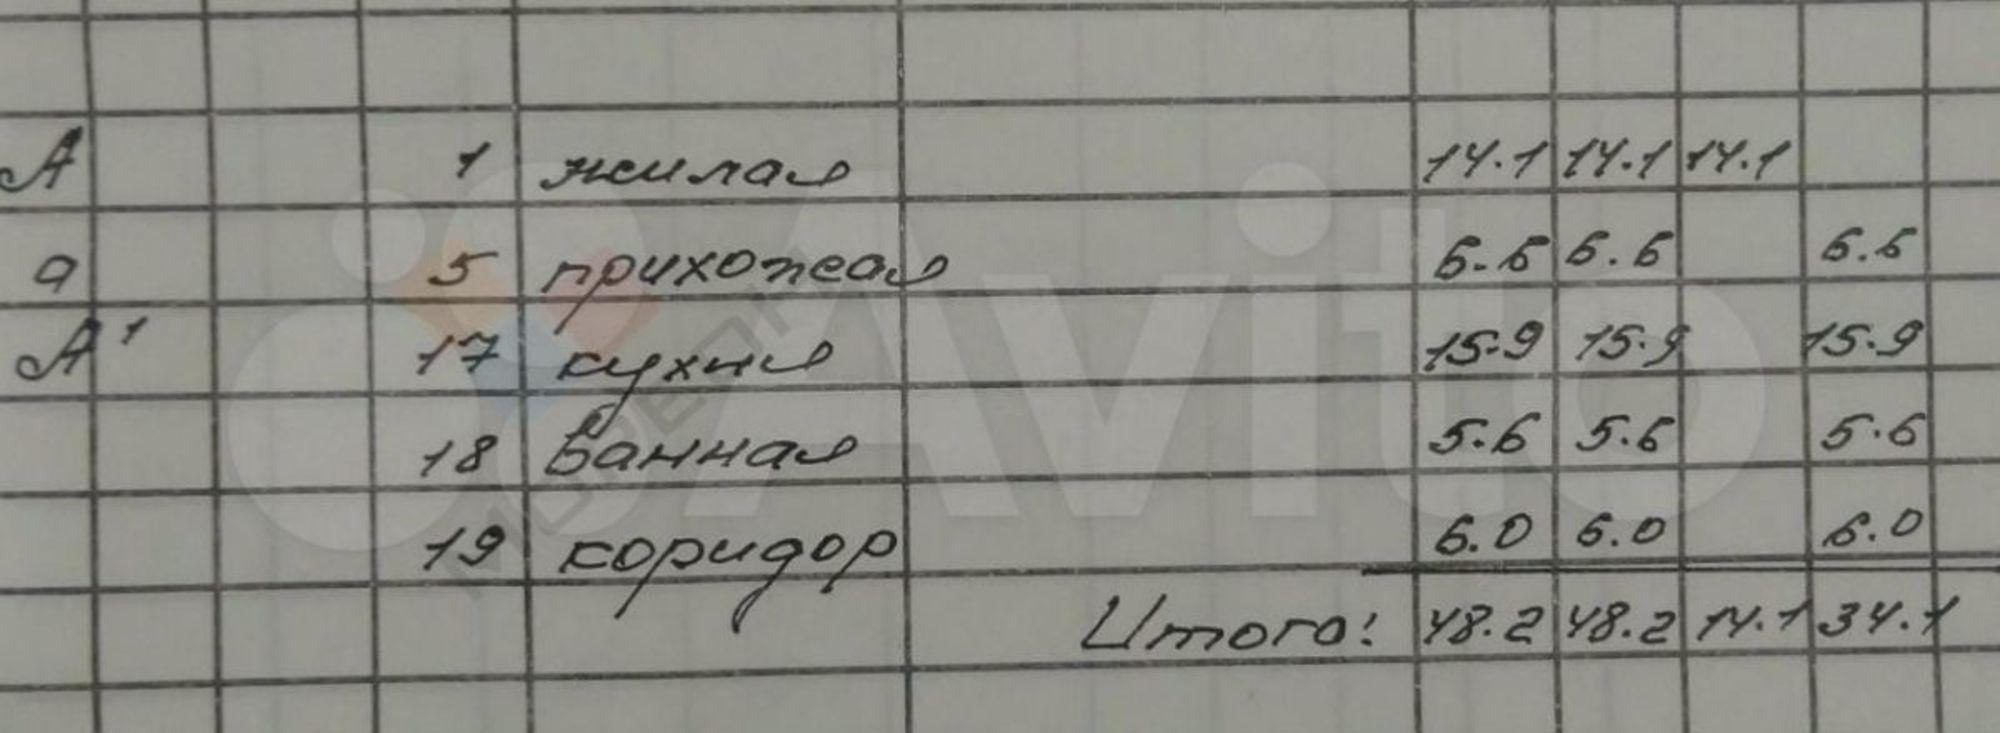 А 1 жилая 14.1 14.1 14.1
а 5 прихожая 6.6 6.6 6.6
А¹ 17 кухня 15.9 15.9 15.9
18 Ванная 5.6 5.6 5.6
19 коридор 6.0 6.0 6.0
Итого: 48.2 48.2 14.1 34.1
Avito